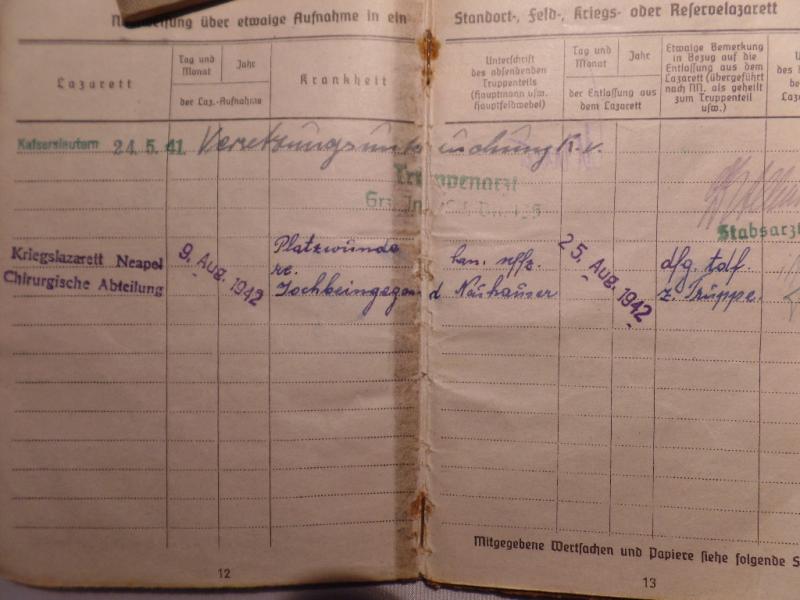 Nachweisung über etwaige Aufnahme in ein
Standort-, Feld-, Kriegs- oder Reservelazarett
Lazarett
Tag und
Monat
Jahr
der Laz.-Aufnahme
Krankheit
Unterschrift
des absendenden
Truppenteils
(Hauptmann usw.
Hauptfeldwebel)
Tag und
Monat
Jahr
der Entlassung aus
dem Lazarett
Etwaige Bemerkung
in Bezug auf die
Entlassung aus dem
Lazarett (übergeführt
nach NN, als geheilt
zum Truppenteil
usw.)
Kaiserslautern 24. 5. 41. Versetzungsuntersuchung k.v.
Truppenarzt
Stabsarzt
Kriegslazarett Neapel
Chirurgische Abteilung
9. Aug. 1942
Platzwunde
re.
Jochbeingegend
Uffz.
Neuhauser
25. Aug. 1942
dfg. tdf.
z. Truppe.
Mitgegebene Wertsachen und Papiere siehe folgende S
12
13